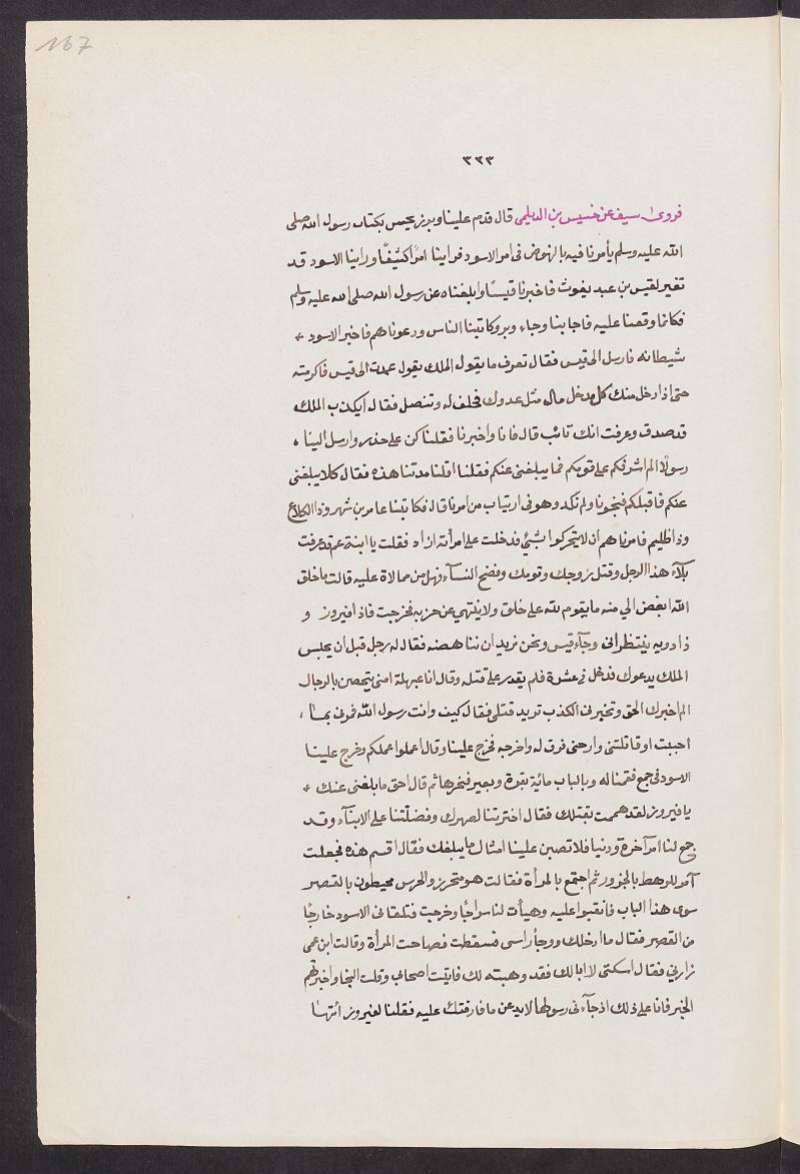 167
٣٢٣
فروى سيف عن خسيس بن الديلمى قال قدم علينا وبر بن يحيس بكتاب رسول الله صلى
الله عليه وسلم يأمرنا فيه بالنهوض فى امر الاسود فراينا امرًا كثيفًا وراينا الاسود قد
تغير لقيس بن عبد يغوث فاخبرنا قيسًا وابلغناه عن رسول الله صلى الله عليه وسلم
فكانما وقعنا عليه فاجابنا وجاء وبر وكاتبنا الناس ودعوناهم فاخبر الاسود
شيطانه فارسل الى قيس فقال تعرف ما يقول الملك يقول عمدت الى قيس فاكرمته
حتى اذا دخل منك كل مدخل مال مثل عدوك فحلف له وتنصل فقال ايكذب الملك
قد صدق وعرفت انك تائب قال فاتا واخبرنا فقلنا كن على حذر وارسل الينا
رسولًا الم اشرفكم على قومكم فما يبلغنى عنكم فقلنا اقلنا مدتنا هذه فقال كلا يبلغنى
عنكم فاقبلكم فنجونا ولم نكد وهو فى ارتياب من امرنا قال فكاتبنا عامر بن شهر وذا الكلاع
وذا ظليم فامرناهم ان لا يتحركوا بشئ فدخلت على امرأته ازاد فقلت يا ابنة عم قد عرفت
بلآء هذا الرجل وقتل زوجك وقومك وفضح النسآء فهل من ممالاة عليه قالت ما خلق
الله ابغض الي منه ما يقوم لله على خلق ولا ينتهي عن حزبه فخرجت فاذا فيروز و
زادويه ينتظرانى وجآء قيس ونحن نريد ان نناهضه فقال له رجل قبل ان يجلس
الملك يدعوك فدخل فى عشرة فلم يقدر على قتله وقال انا عبهلة امنى يتحصن بالرجال
الم اخبرك الحق وتخبرنى الكذب تريد قتلى فقال كيف وانت رسول الله فرنى بما
احببت او قاتلتنى وارحنى فرق له واخرجه فخرج علينا وقال اعملوا عملكم وخرج علينا
الاسود فى جمع فقمنا له وبالباب مائية بقرة وبعير فنحرها ثم قال احق ما بلغنى عنك
يا فيروز لقد هممت بقتلك فقال اخترتنا لصهرك وفضلّتنا على الابنآء وقد
جمع لنا امر آخرة ودنيا فلا تصبن علينا امثال ما يبلغك فقال اقسم هذه فجعلت
آمر للرهط بالجزور ثم اجتمع بالمرأة فقالت هو متحرز والحرس محيطون بالقصر
سوى هذا الباب فانقبوا عليه وهيأت لنا سراجًا وخرجت فتلقانى الاسود خارجًا
من القصر فقال ما ادخلك ووجأ راسى فسقطت فصاحت المرأة وقالت ابن عمى
زارنى فقال اسكتى لا ابا لك فقد وهبته لك فاتيت اصحابى وقلت النجا واخبرتهم
الخبر فانا على ذلك اذ جآء نى رسولها لا بد عن ما فارقتك عليه فقلنا لفيروز ائتها